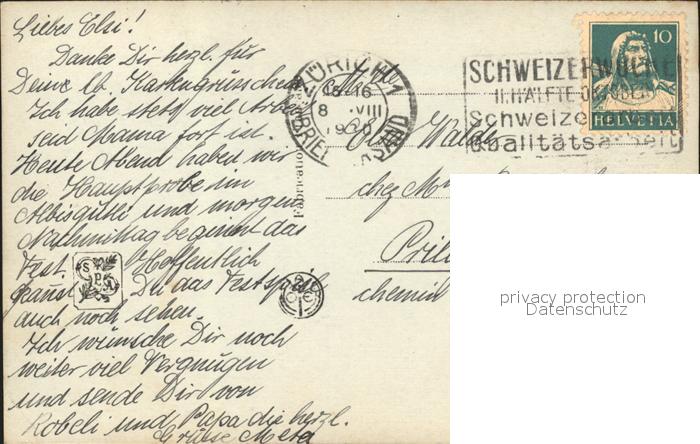 Liebes Elsi!
Danke Dir herzl. für
Deine lb. Kartengrüsschen
Ich habe stets viel Arbeit
seid Mama fort ist.
Heute Abend haben wir
die Hauptprobe im
Albisgütli und morgen
Nachmittag beginnt das
Fest. Hoffentlich
kannst Du das Festspiel
auch noch sehen.
Ich wünsche Dir noch
weiter viel Vergnügen
und sende Dir von
Robeli und Papa die herzl.
Grüsse Meta
ZÜRICH 1
8 VIII
BRIEFVERSAND
SCHWEIZERWOCHE
II. HÄLFTE OKTOBER
Schweizer
Qualitätsarbeit
10
HELVETIA
Elsi Waldv
chez
Pril
chemin
Fabrication
privacy protection
Datenschutz